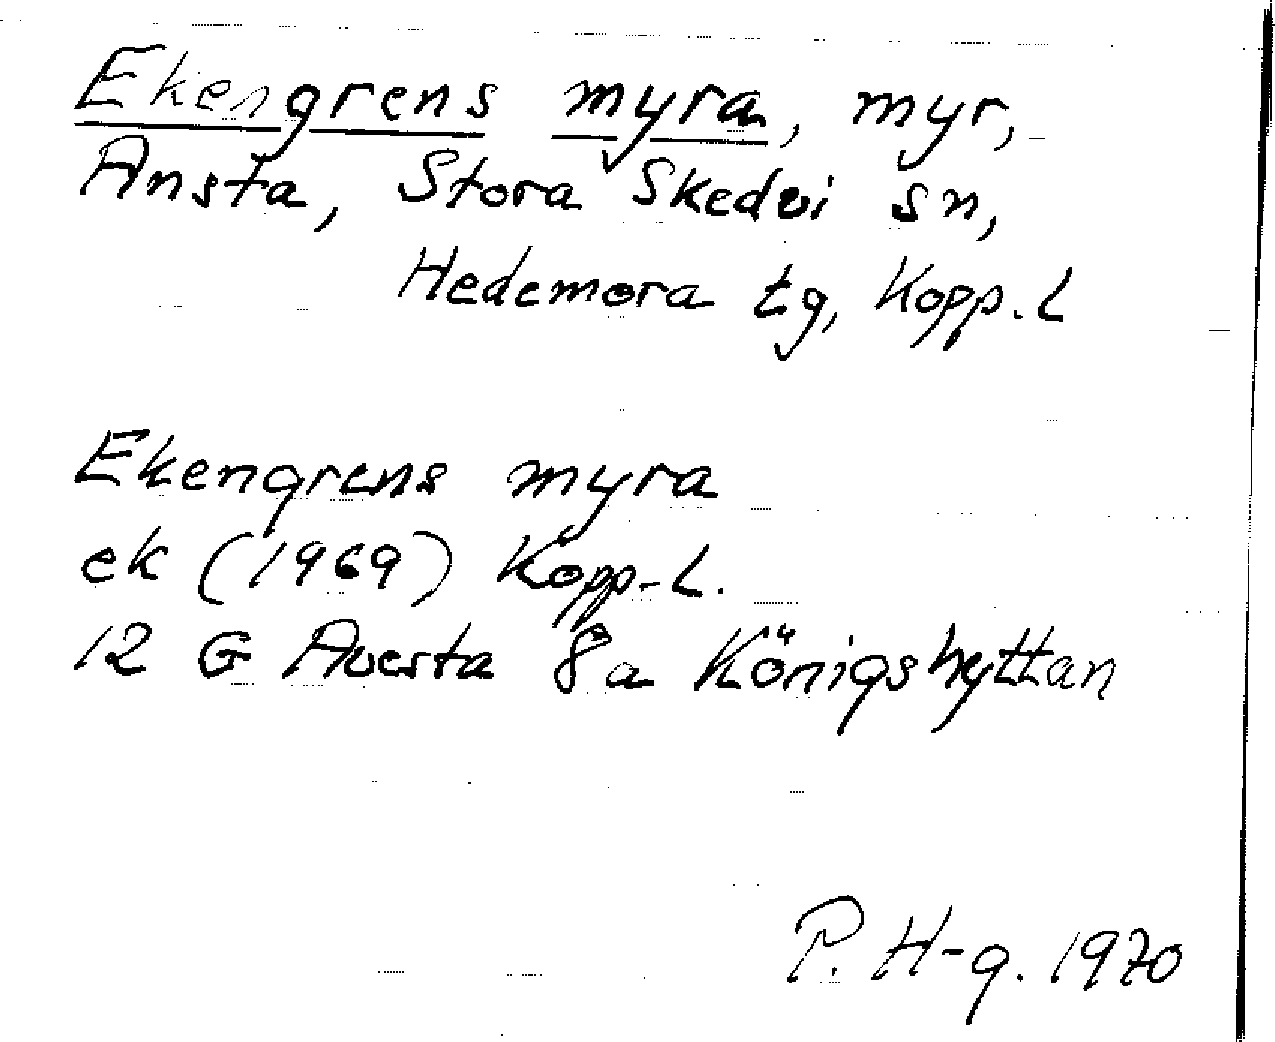 Ekengrens myra, myr,
Ansta, Stora Skedvi sn,
Hedemora tg, Kopp. L
Ekengrens myra
ek (1969) Kopp-L.
12 G Avesta 8a Königshyttan
P. H-g. 1970